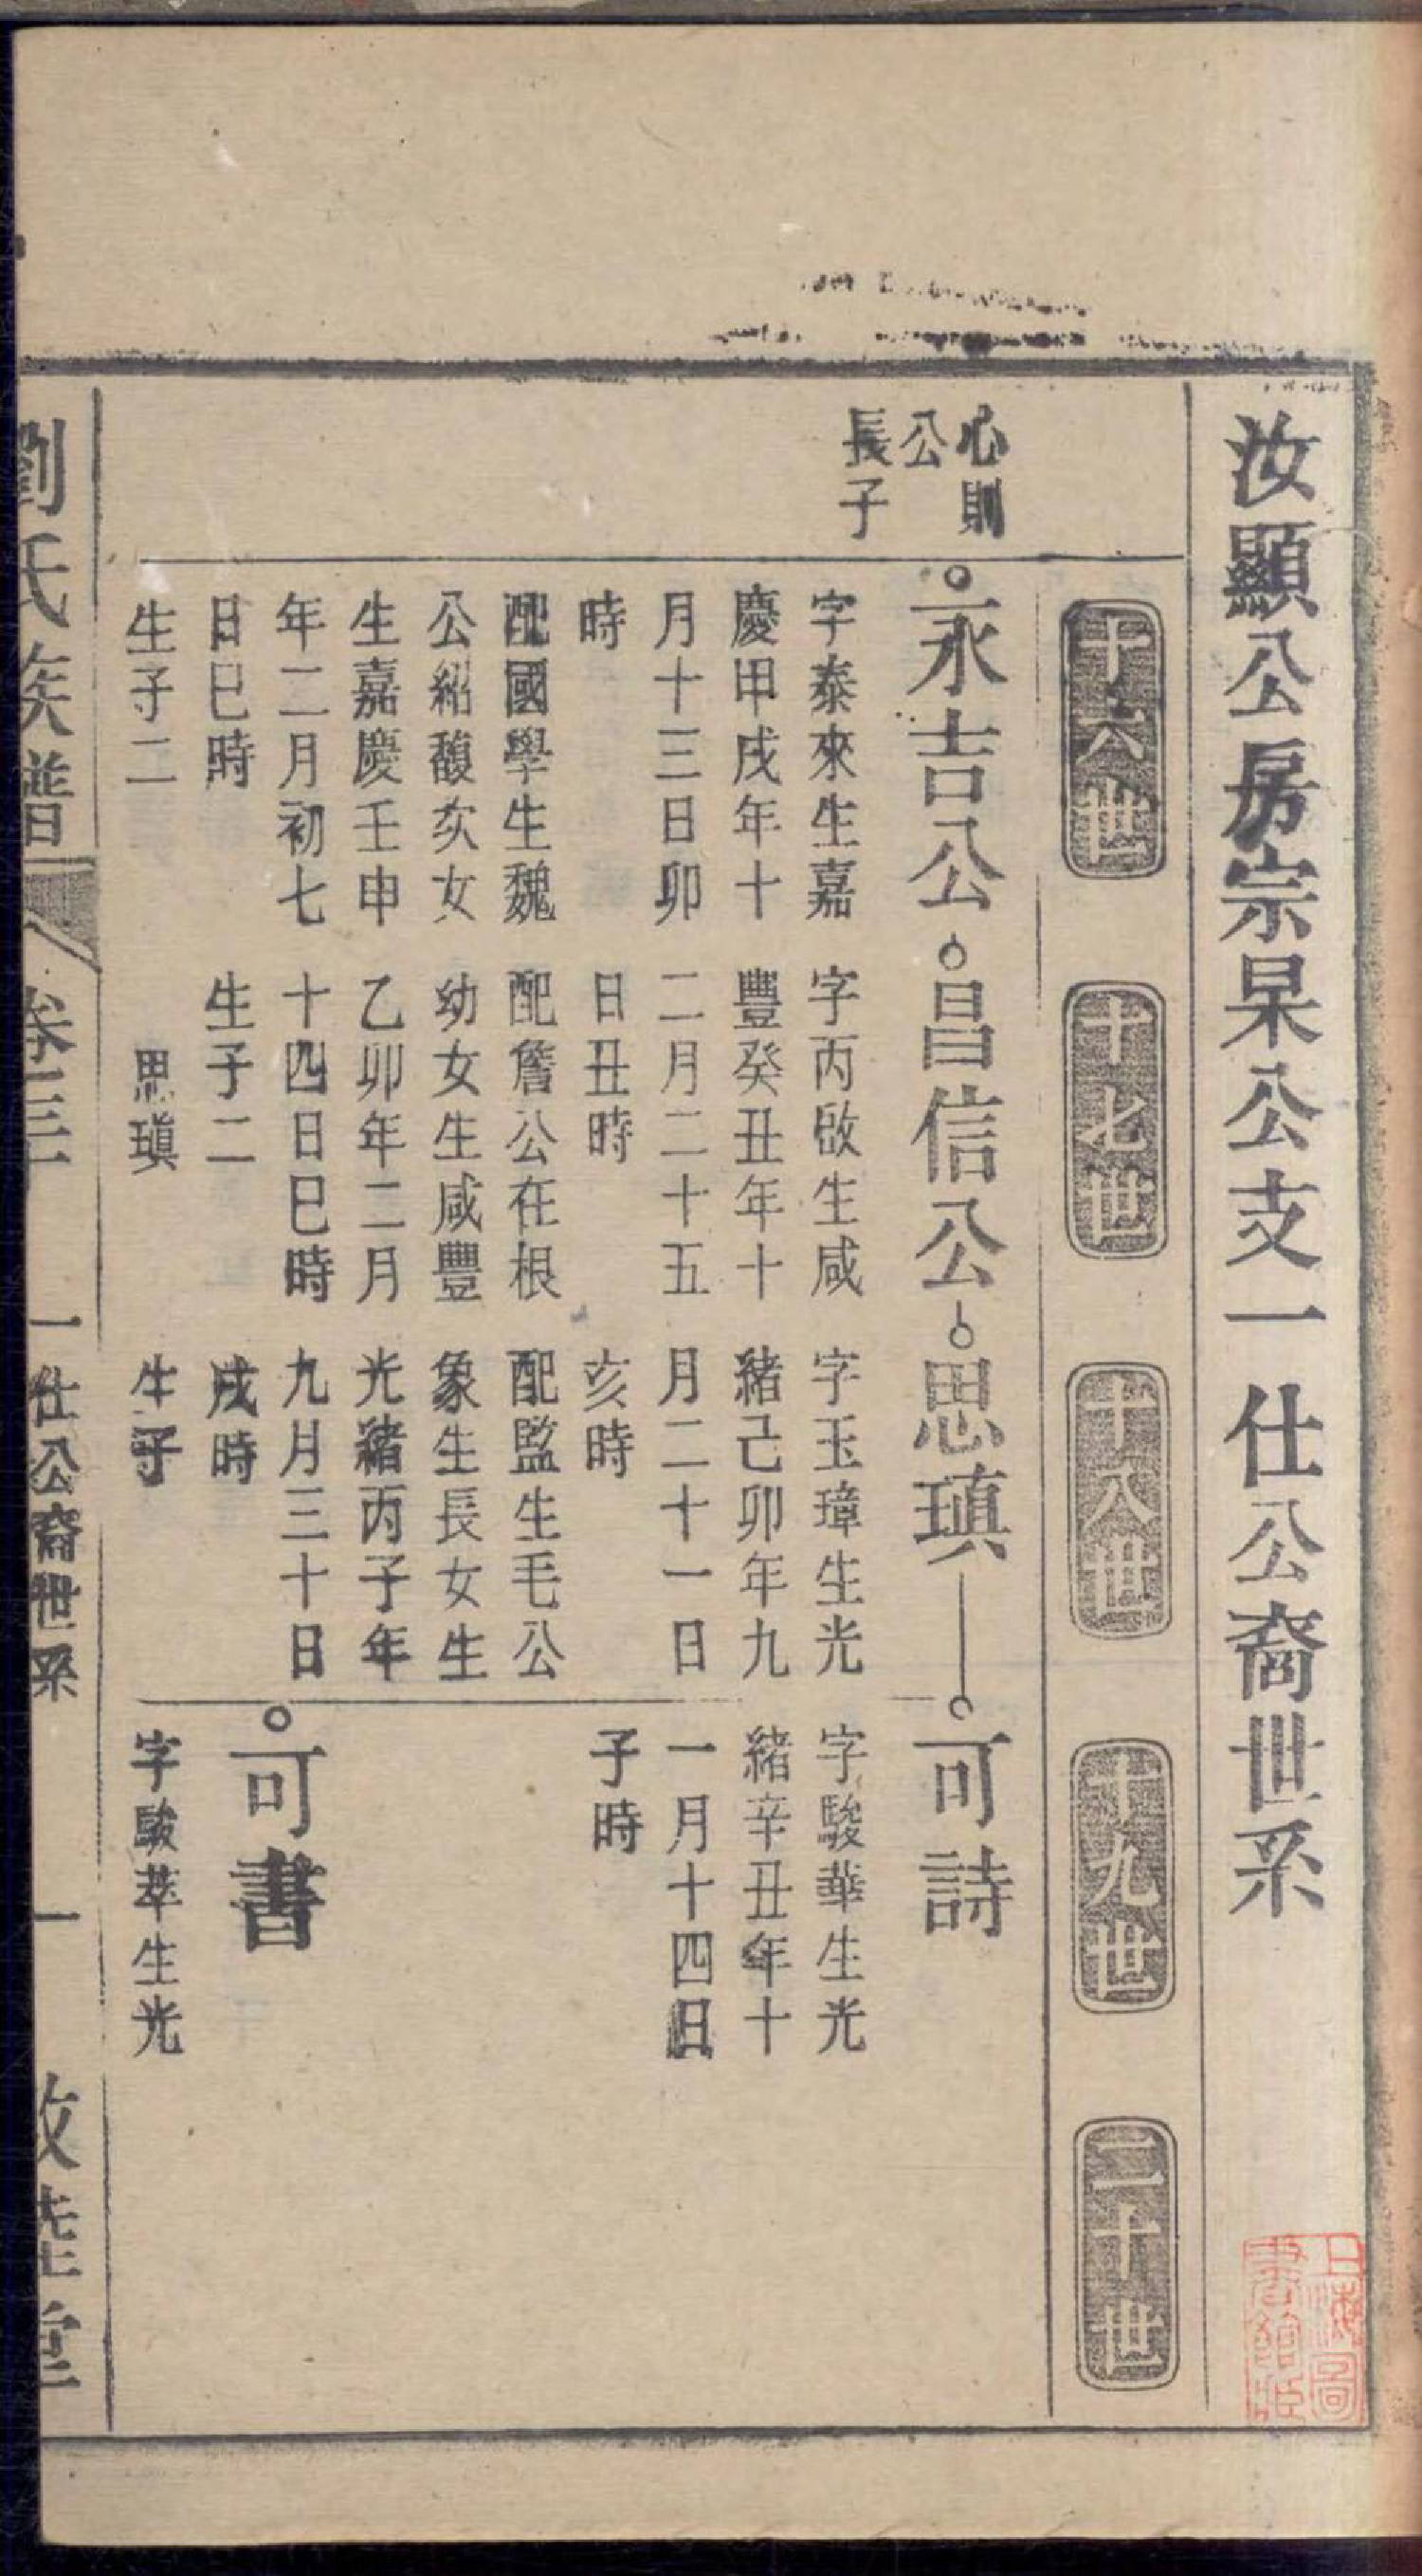 汝顯公房宗杲公支一仕公裔世系
十六世
十七世
十八世
十九世
二十世
心則
公
長子
永吉公
字泰來生嘉
慶甲戌年十
月十三日卯
時
配國學生魏
公紹馥次女
生嘉慶壬申
年二月初七
日巳時
生子二
昌信公
字丙啟生咸
豐癸丑年十
二月二十五
日丑時
配詹公在根
幼女生咸豐
乙卯年二月
十四日巳時
生子二
思瑱
思瑱
字玉璋生光
緒己卯年九
月二十一日
亥時
配監生毛公
象生長女生
光緒丙子年
九月三十日
戌時
生子
可詩
字駿華生光
緒辛丑年十
一月十四日
子時
可書
字駿萃生光
劉氏族譜
卷三
一仕公裔世系
一
上海圖
書館藏